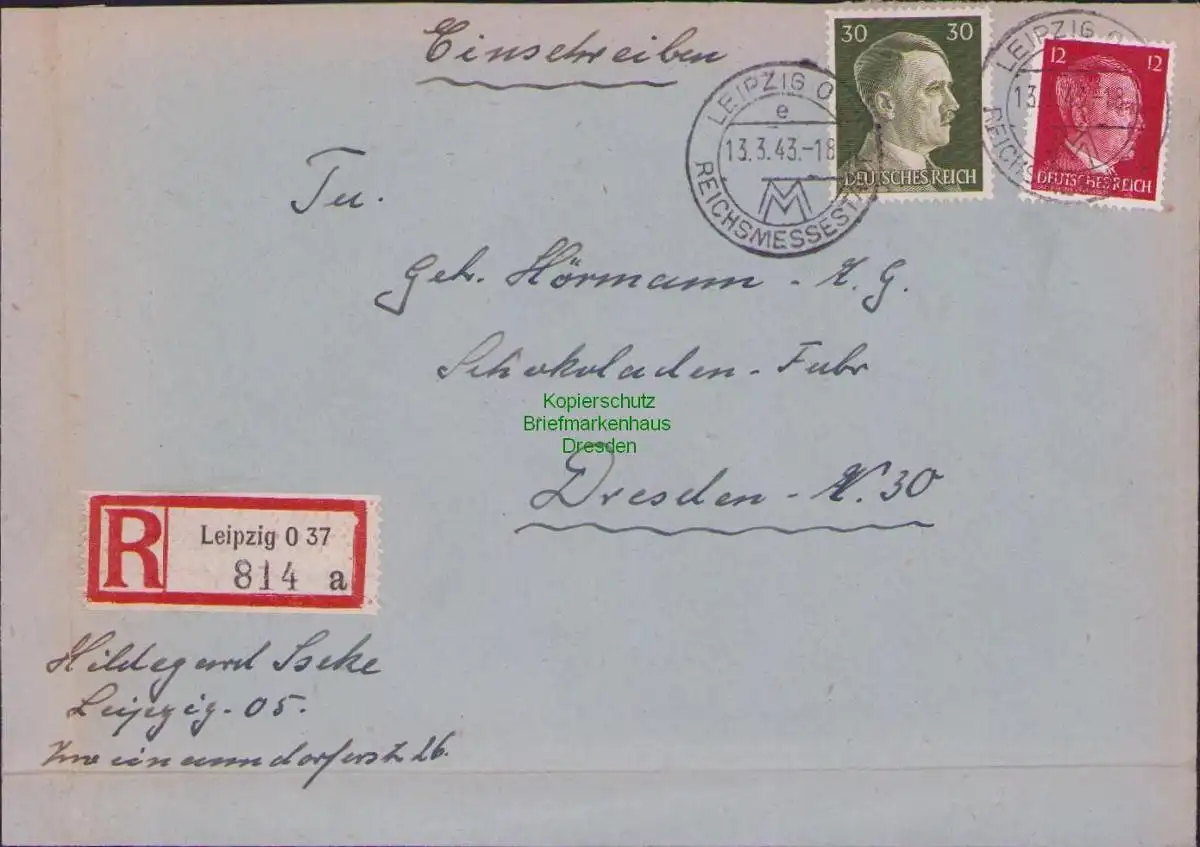 Einschreiben
30 30
DEUTSCHES REICH
12 12
DEUTSCHES REICH
LEIPZIG O
e
13.3.43.-18
REICHSMESSESTA
LEIPZIG O
13. 43.-18
REICHSM
Geh. Hörmann - K. G.
Schokoladen - Fabr
Kopierschutz
Briefmarkenhaus
Dresden
Dresden - N. 30
R
Leipzig O 37
814 a
Hildegard
Leipzig - O5.
Zweinaundorferstr. 26.